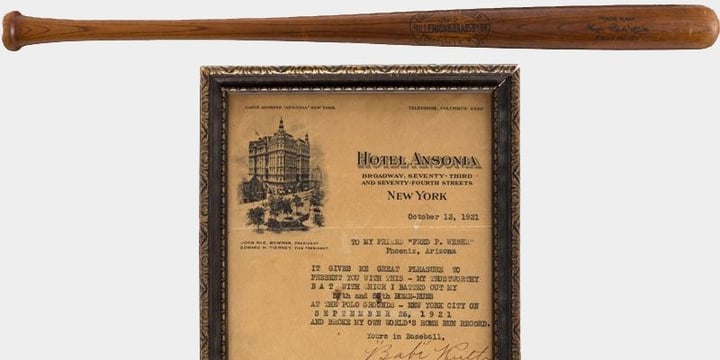 HILLERICH & BRADSBY Co
TRADE MARK
CABLE ADDRESS "ANSONIA" NEW YORK.
TELEPHONE, COLUMBUS
HOTEL ANSONIA
BROADWAY, SEVENTY-THIRD
AND SEVENTY-FOURTH STREETS
NEW YORK
October 13, 1921
JOHN McE. BOWMAN, PRESIDENT
EDWARD M. TIERNEY, VICE PRESIDENT
TO MY FRIEND "FRED P. WEBER"
Phoenix, Arizona
IT GIVES ME GREAT PLEASURE TO
PRESENT YOU WITH THIS - MY TRUSTWORTHY
B A T WITH WHICH I BATTED OUT MY
57th and 58th HOME-RUNS
AT THE POLO GROUNDS - NEW YORK CITY ON
S E P T E M B E R 26, 1 9 2 1
AND BROKE MY OWN WORLD'S HOME RUN RECORD.
Yours in Baseball,
"Babe" Ruth